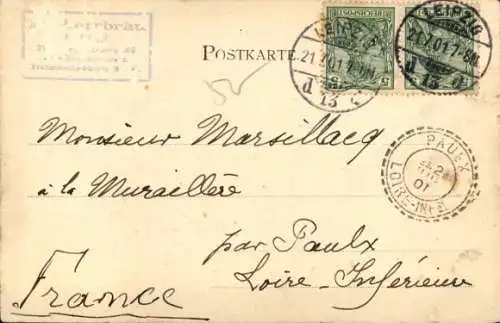 POSTKARTE.
LEIPZIG
21.7.01.7-8N.
d 13 d
LEIPZIG
21.7.01.7-8N.
d 13 d
PAULX
01
LOIRE-INFRE
Monsieur Marsillacq
à la Muraillère
par Paulx
Loire-Inférieure
France